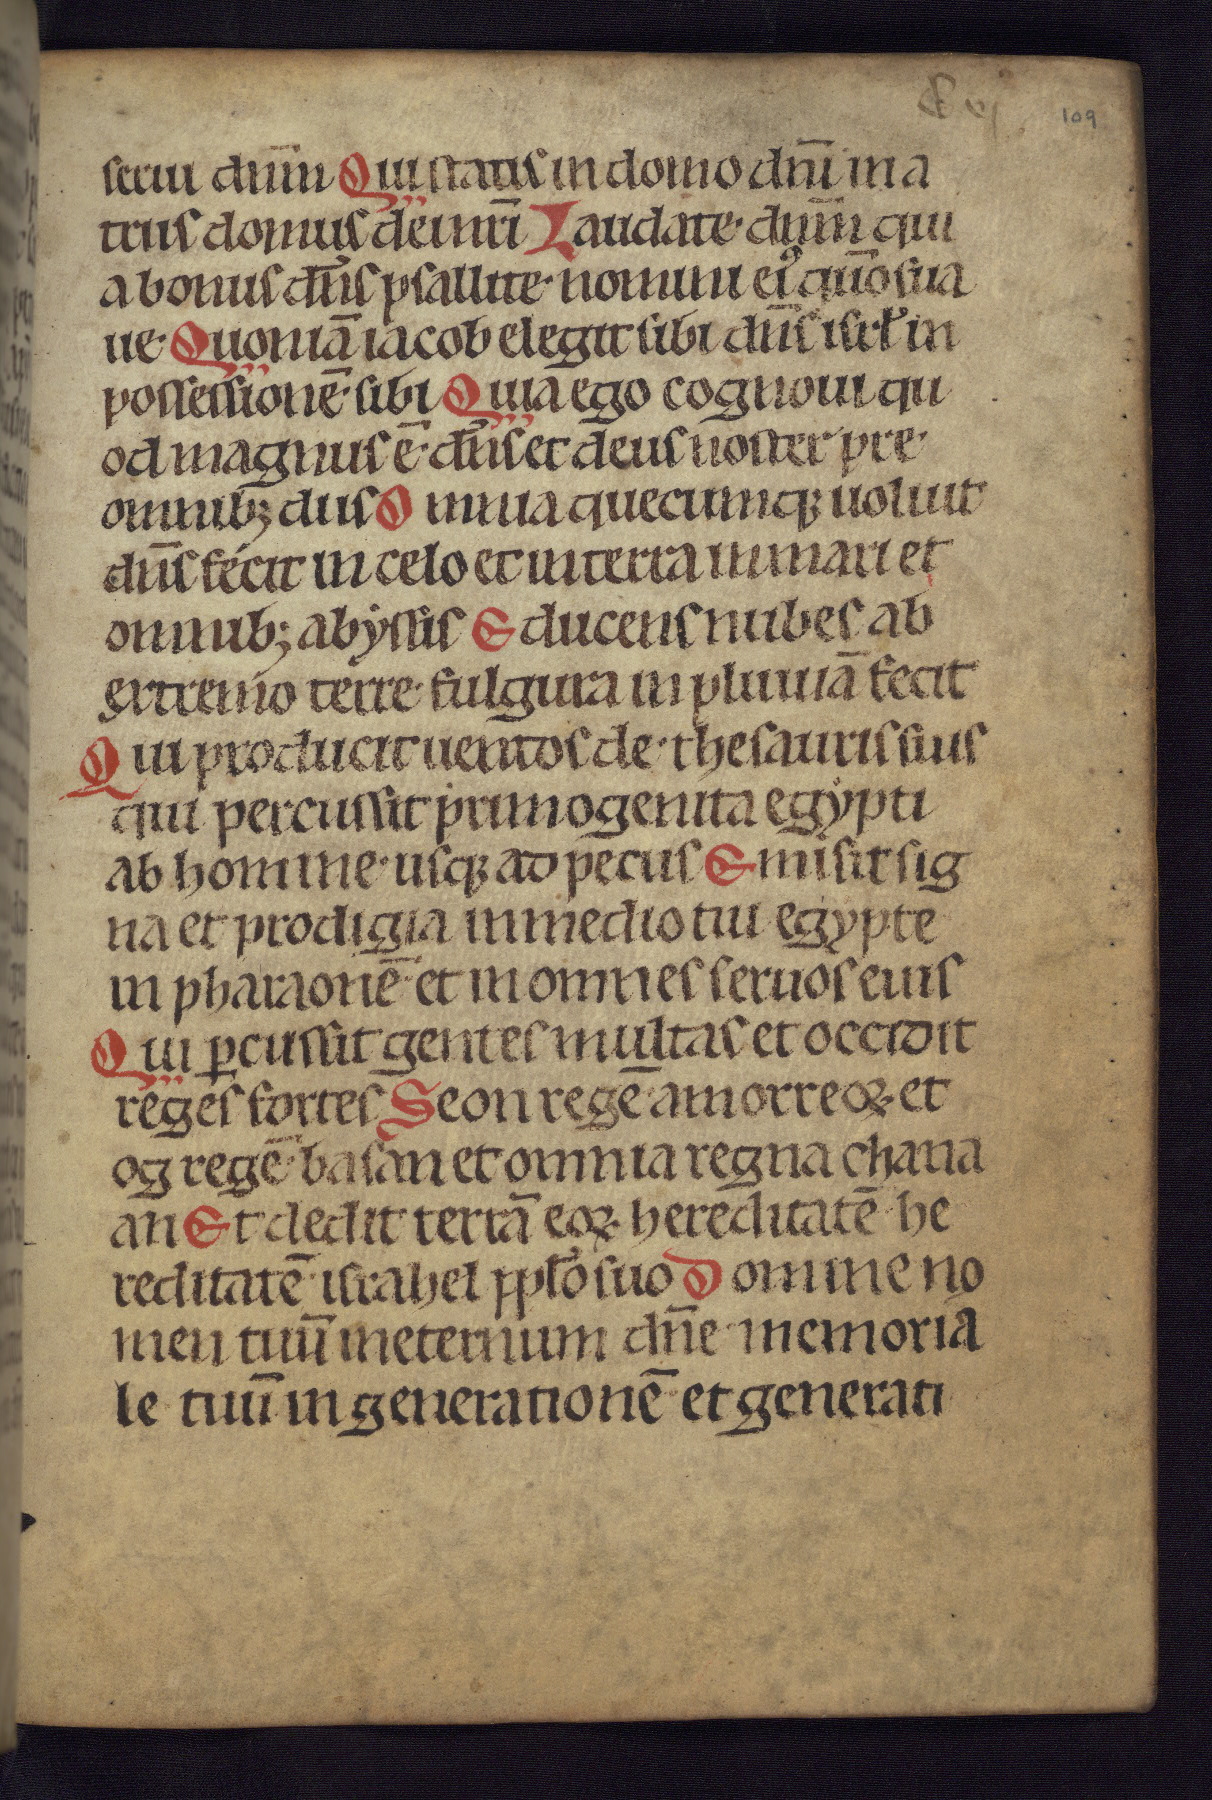 109
serui dnm̄ Qui statis in domo dnī in a
triis domus dei nrī Laudate dnm̄ qui
a bonus dn̄s psallite nomini eiꝰ qm̄o sua
ue Quoniā iacob elegit sibi dn̄s isrl̄ in
possessionē sibi Quia ego cognoui qu
od magnus ē dn̄s et deus noster pre
omnib; diis Omnia quecumq; uoluit
dn̄s fecit in celo et in terra in mari et
omnib; abyssis Educens nubes ab
extremo terre fulgura in pluuiā fecit
Qui producit uentos de thesauris suis
qui percussit primogenita egypti
ab homine usq; ad pecus Emisit sig
na et prodigia in medio tui egypte
in pharaonē et in omnes seruos eius
Qui ꝑcussit gentes multas et occidit
reges fortes Seon regē amorreoꝝ et
og regē basan et omnia regna chana
an Et dedit terrā eoꝝ hereditatē he
reditatē israhel pplō suo Domine no
men tuū in eternum dn̄e memoria
le tuū in generationē et generati